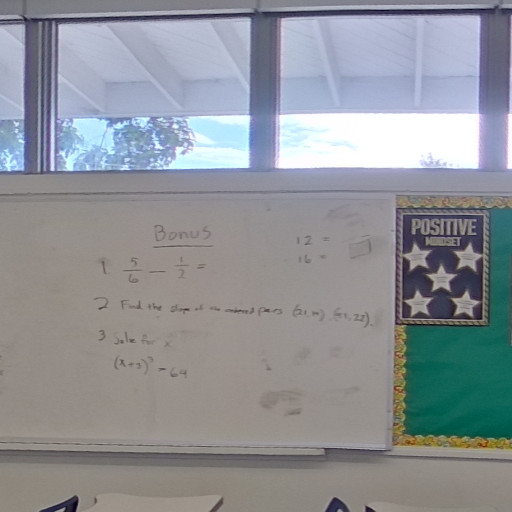 Bonus
1. 5/6 - 1/2 =
12 =
16 =
2 Find the slope of the ordered pairs
3 Solve for x
(x+5)³ = 64
POSITIVE
MINDSET